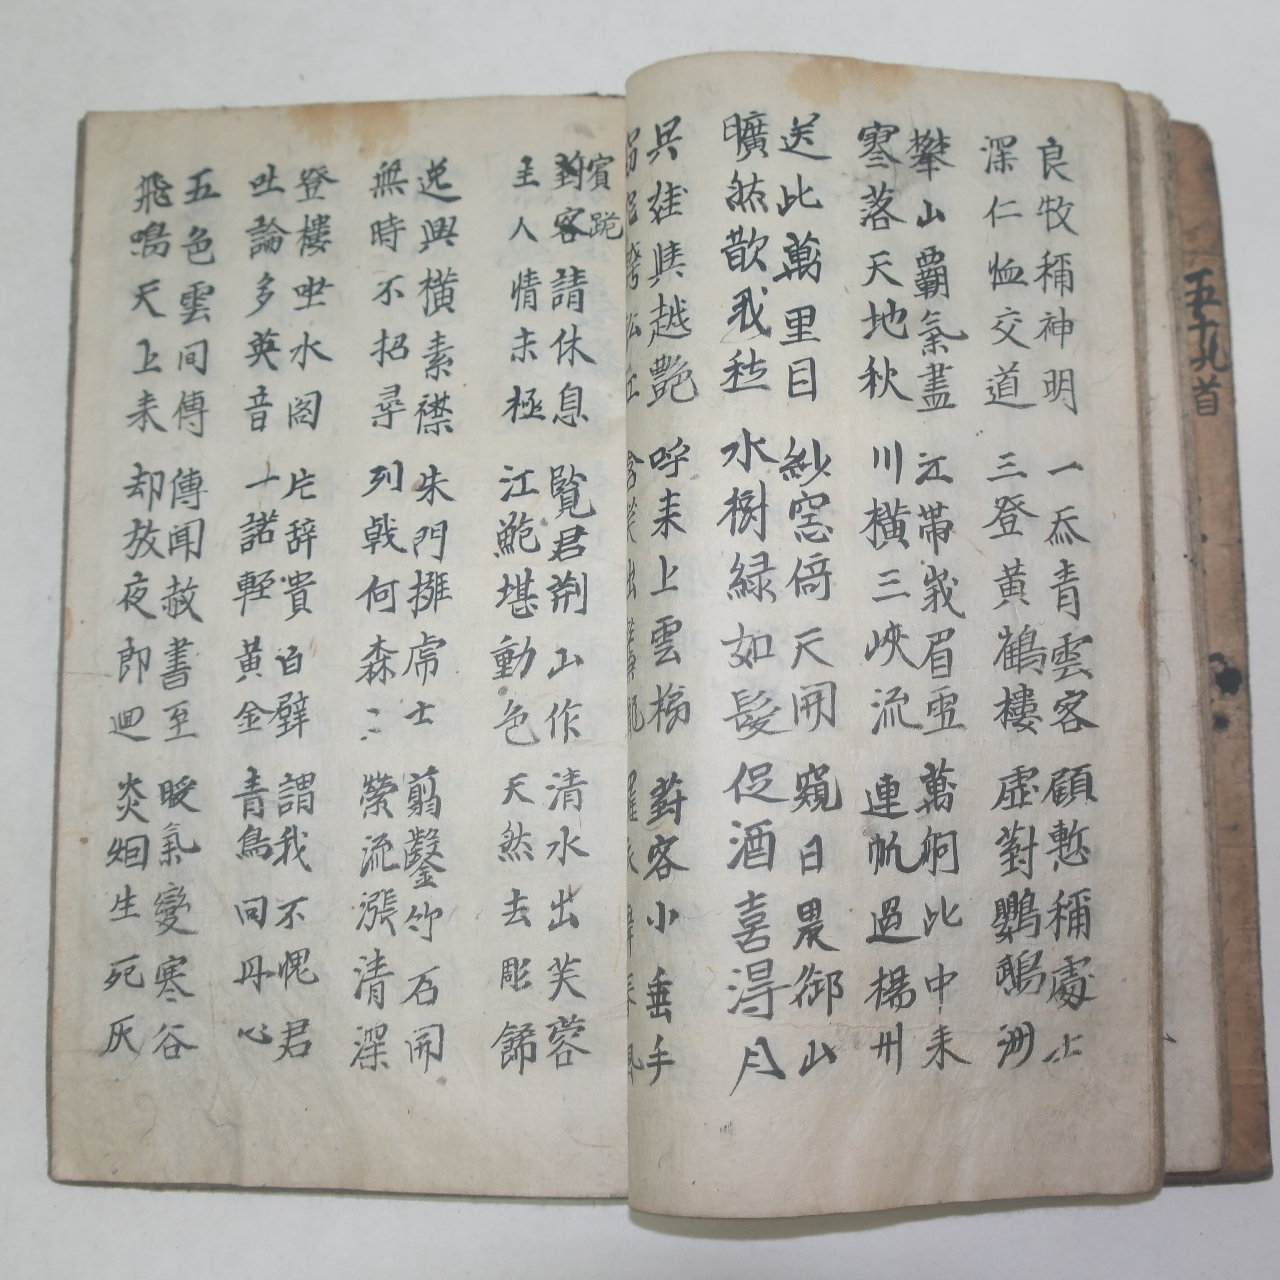 五十九首
良牧稱神明 一忝青雲客 顧慙稱處士
深仁恤交道 三登黄鶴樓 虛對鸚鵡洲
攀山覇氣盡 江帶峩眉雪 萬舸此中来
寥落天地秋 川橫三峽流 連帆過楊州
送此萬里目 紗窓倚天開 窺日畏御山
曠然散我愁 水樹綠如髮 促酒喜得月
吳娃與越艶 呼来上雲梯 對客小垂手
賓跪
對客請休息 覽君荊山作 清水出芙蓉
主人情未極 江鮑堪動色 天然去彫餙
逸興橫素襟 朱門擁虎士 剪鑿竹石開
無時不招尋 列戟何森〻 縈流漲清深
登樓坐水閣 片辞貴白璧 謂我不愧君
吐論多英音 一諾輕黄金 青鳥同丹心
五色雲间傳 傳聞赦書至 暖氣變寒谷
飛鳴天上来 却放夜郎迴 炎烟生死灰